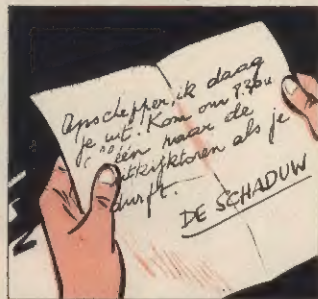 Opschepper, ik daag
je uit. Kom om
één naar de
itkijktoren als je
durft. —
DE SCHADUW